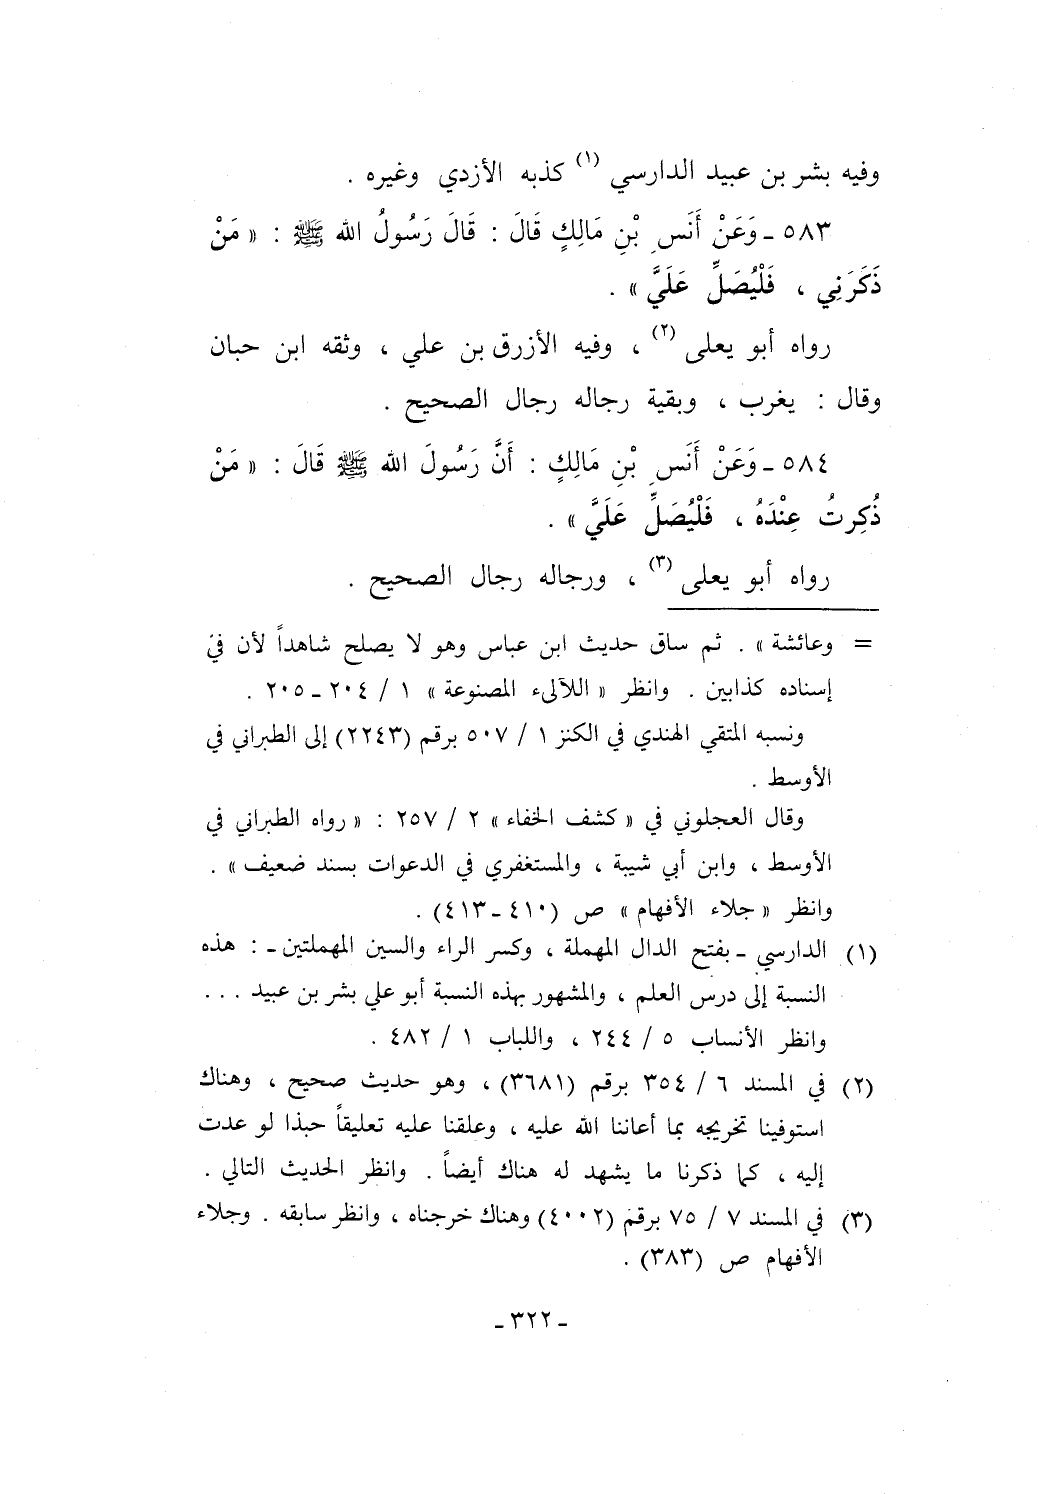 وفيه بشر بن عبيد الدارسي (١) كذبه الأزدي وغيره .
٥٨٣ ـ وَعَنْ أَنَسِ بْنِ مَالِكٍ قَالَ : قَالَ رَسُولُ الله ﷺ : « مَنْ
ذَكَرَنِي ، فَلْيُصَلِّ عَلَيَّ » .
رواه أبو يعلى (٢) ، وفيه الأزرق بن علي ، وثقه ابن حبان
وقال : يغرب ، وبقية رجاله رجال الصحيح .
٥٨٤ ـ وَعَنْ أَنَسِ بْنِ مَالِكٍ : أَنَّ رَسُولَ الله ﷺ قَالَ : « مَنْ
ذُكِرتُ عِنْدَهُ ، فَلْيُصَلِّ عَلَيَّ » .
رواه أبو يعلى (٣) ، ورجاله رجال الصحيح .
= وعائشة » . ثم ساق حديث ابن عباس وهو لا يصلح شاهداً لأن في
إسناده كذابين . وانظر « اللآلىء المصنوعة » ١ / ٢٠٤ ـ ٢٠٥ .
ونسبه المتقي الهندي في الكنز ١ / ٥٠٧ برقم (٢٢٤٣) إلى الطبراني في
الأوسط .
وقال العجلوني في « كشف الخفاء » ٢ / ٢٥٧ : « رواه الطبراني في
الأوسط ، وابن أبي شيبة ، والمستغفري في الدعوات بسند ضعيف » .
وانظر « جلاء الأفهام » ص (٤١٠ ـ ٤١٣) .
(١) الدارسي ـ بفتح الدال المهملة ، وكسر الراء والسين المهملتين ـ : هذه
النسبة إلى درس العلم ، والمشهور بهذه النسبة أبو علي بشر بن عبيد ...
وانظر الأنساب ٥ / ٢٤٤ ، واللباب ١ / ٤٨٢ .
(٢) في المسند ٦ / ٣٥٤ برقم (٣٦٨١) ، وهو حديث صحيح ، وهناك
استوفينا تخريجه بما أعاننا الله عليه ، وعلقنا عليه تعليقاً حبذا لو عدت
إليه ، كما ذكرنا ما يشهد له هناك أيضاً . وانظر الحديث التالي .
(٣) في المسند ٧ / ٧٥ برقم (٤٠٠٢) وهناك خرجناه ، وانظر سابقه . وجلاء
الأفهام ص (٣٨٣) .
ـ ٣٢٢ ـ